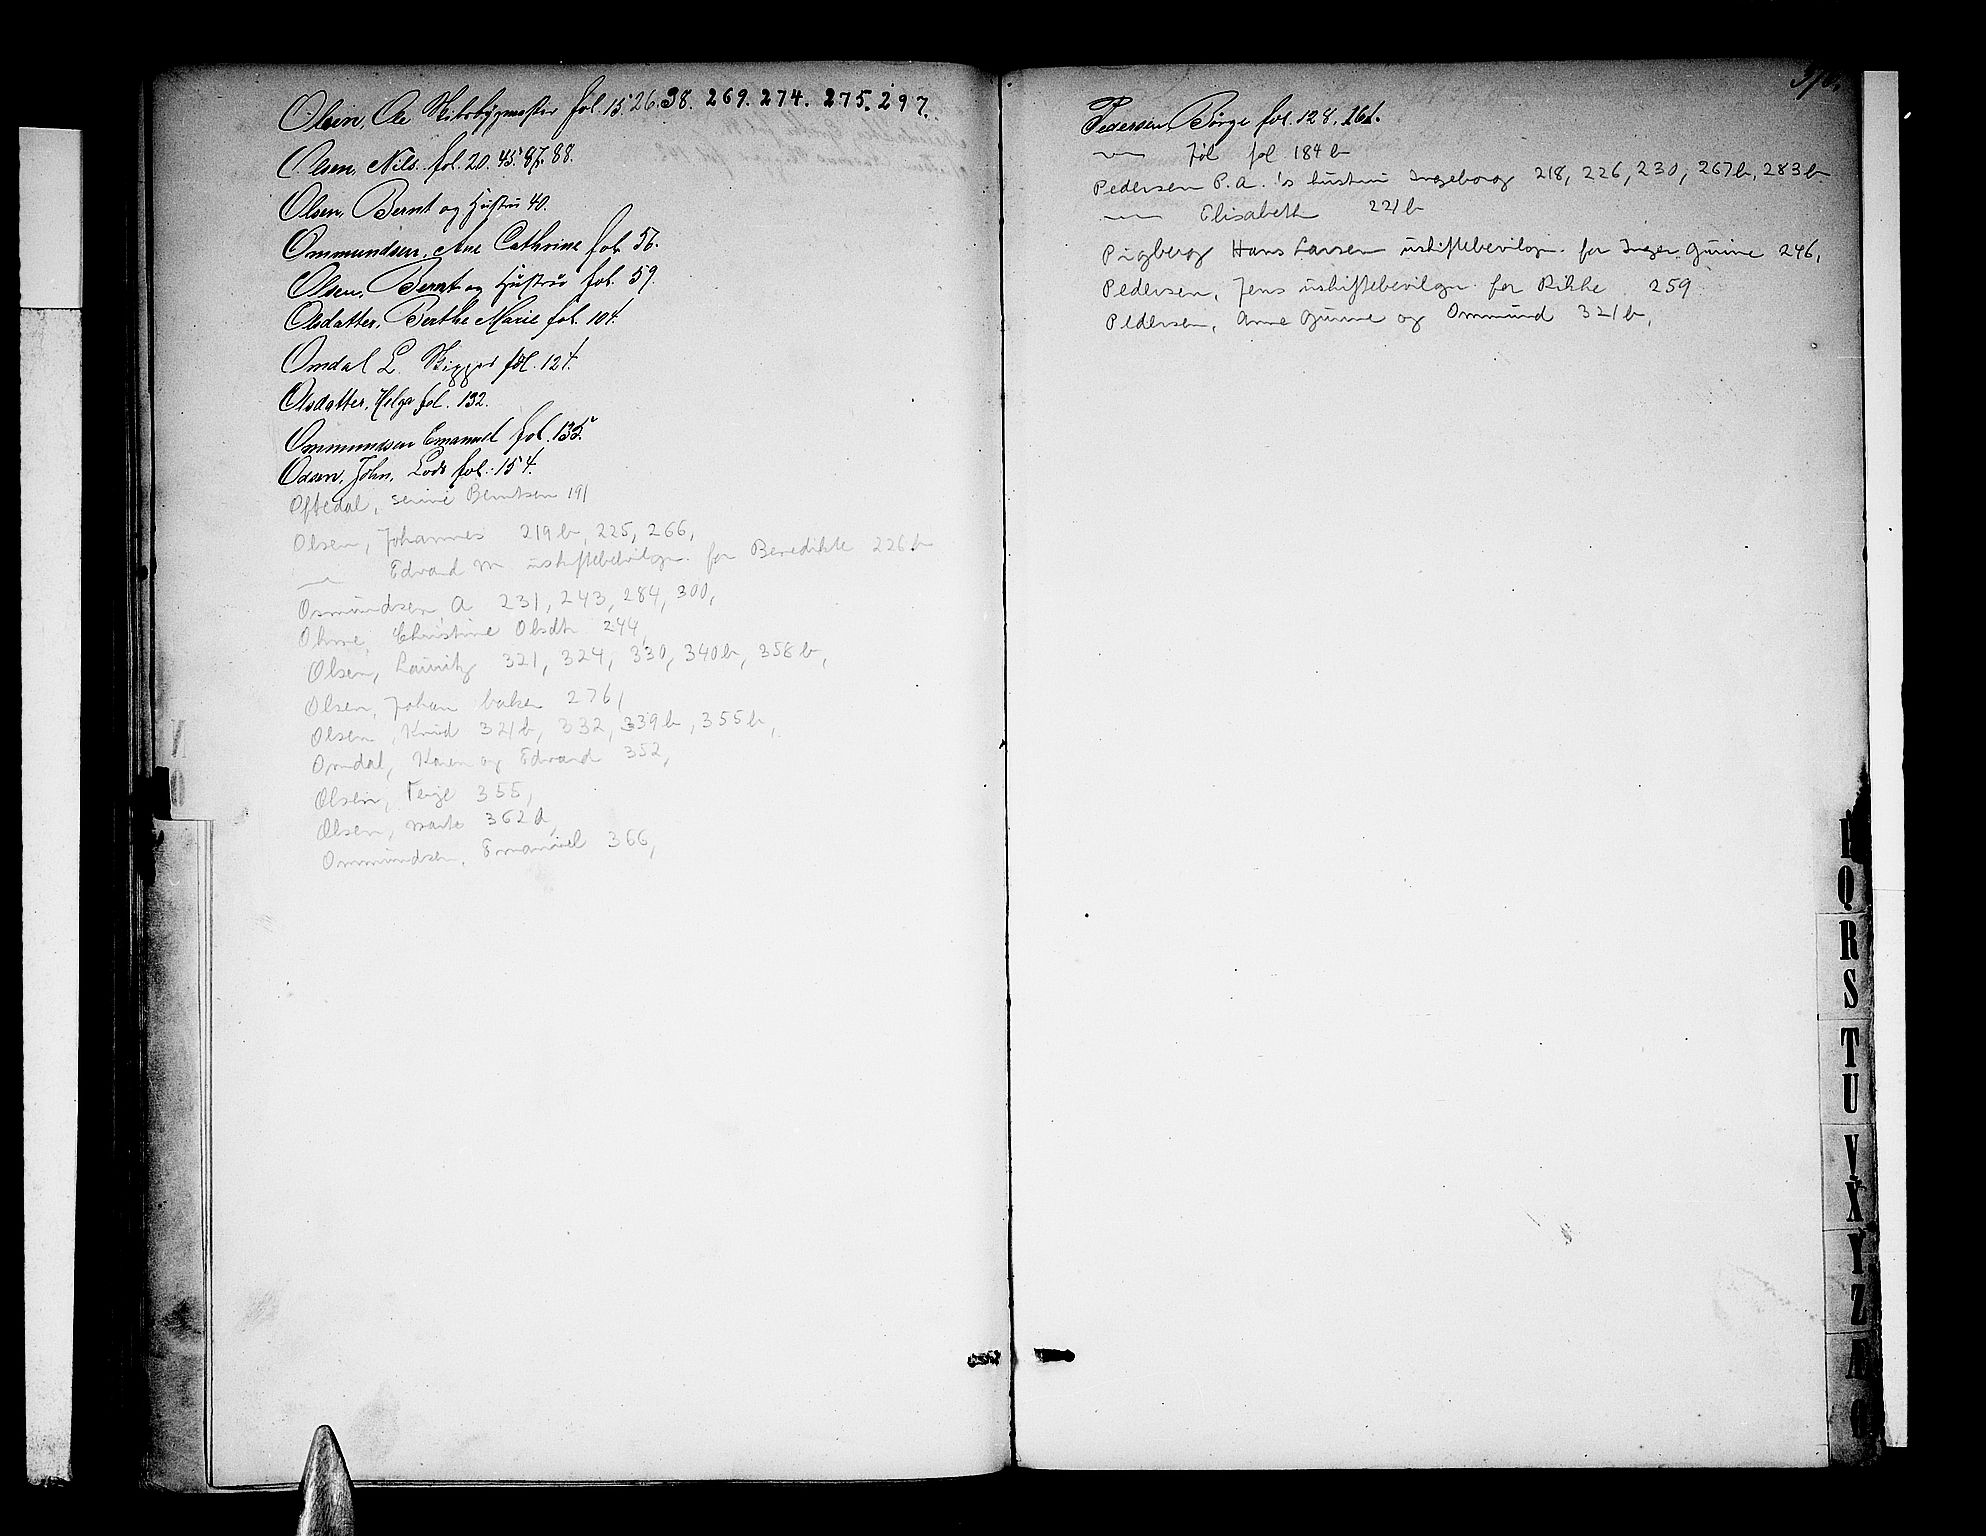 Olsen, Ole Skibsbygmester fol. 15. 26. 38. 269. 274. 275. 297.
Olsen, Nils. fol. 20. 45. 87. 88.
Olsen, Bernt og Hustru 40.
Ommundsen, Ane Cathrine fol. 56.
Olsen, Bernt og Hustru fol. 59.
Olsdatter, Berthe Marie fol. 104.
Omdal L. Skipper fol. 124.
Olsdatter, Helga fol. 132.
Ommundsen Emanuel fol. 135.
Olsen, John, Lods fol. 154.
Oftedal, Serine Berntsen 191
Olsen, Johannes 219b, 225, 266,
— Edvard M uskiftebevilgn. for Benedikte 226b
Osmundsen A 231, 243, 284, 300,
Ohme, Christine Olsdtr 244,
Olsen, Lauritz 321, 324, 330, 340b, 358b,
Olsen, Johan baker 276,
Olsen, Knud 321b, 332, 339b, 355b,
Omdal, Karen og Edvard 352,
Olsen, Terje 355,
Olsen, Marte 362a,
Ommundsen, Emanuel 366,
N
O
Pedersen, Børge fol. 128. 161.
— Jöl fol 184b
Pedersen P.A.'s hustru Ingeborg 218, 226, 230, 267b, 283b
— Elisabeth 221b
Pigberg Hans Larsen uskiftebevilgn. for Inger Gurine 246,
Pedersen, Jens uskiftebevilgn. for Rikke 259
Pedersen, Anne Gurine og Ommund 321b,
P
Q
R
S
T
U
V
X
Y
Z
Æ
Ø